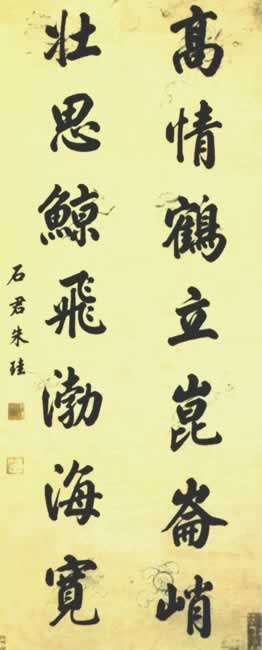 高情鶴立崑崙峭
壮思鯨飛渤海寛
石君朱珪